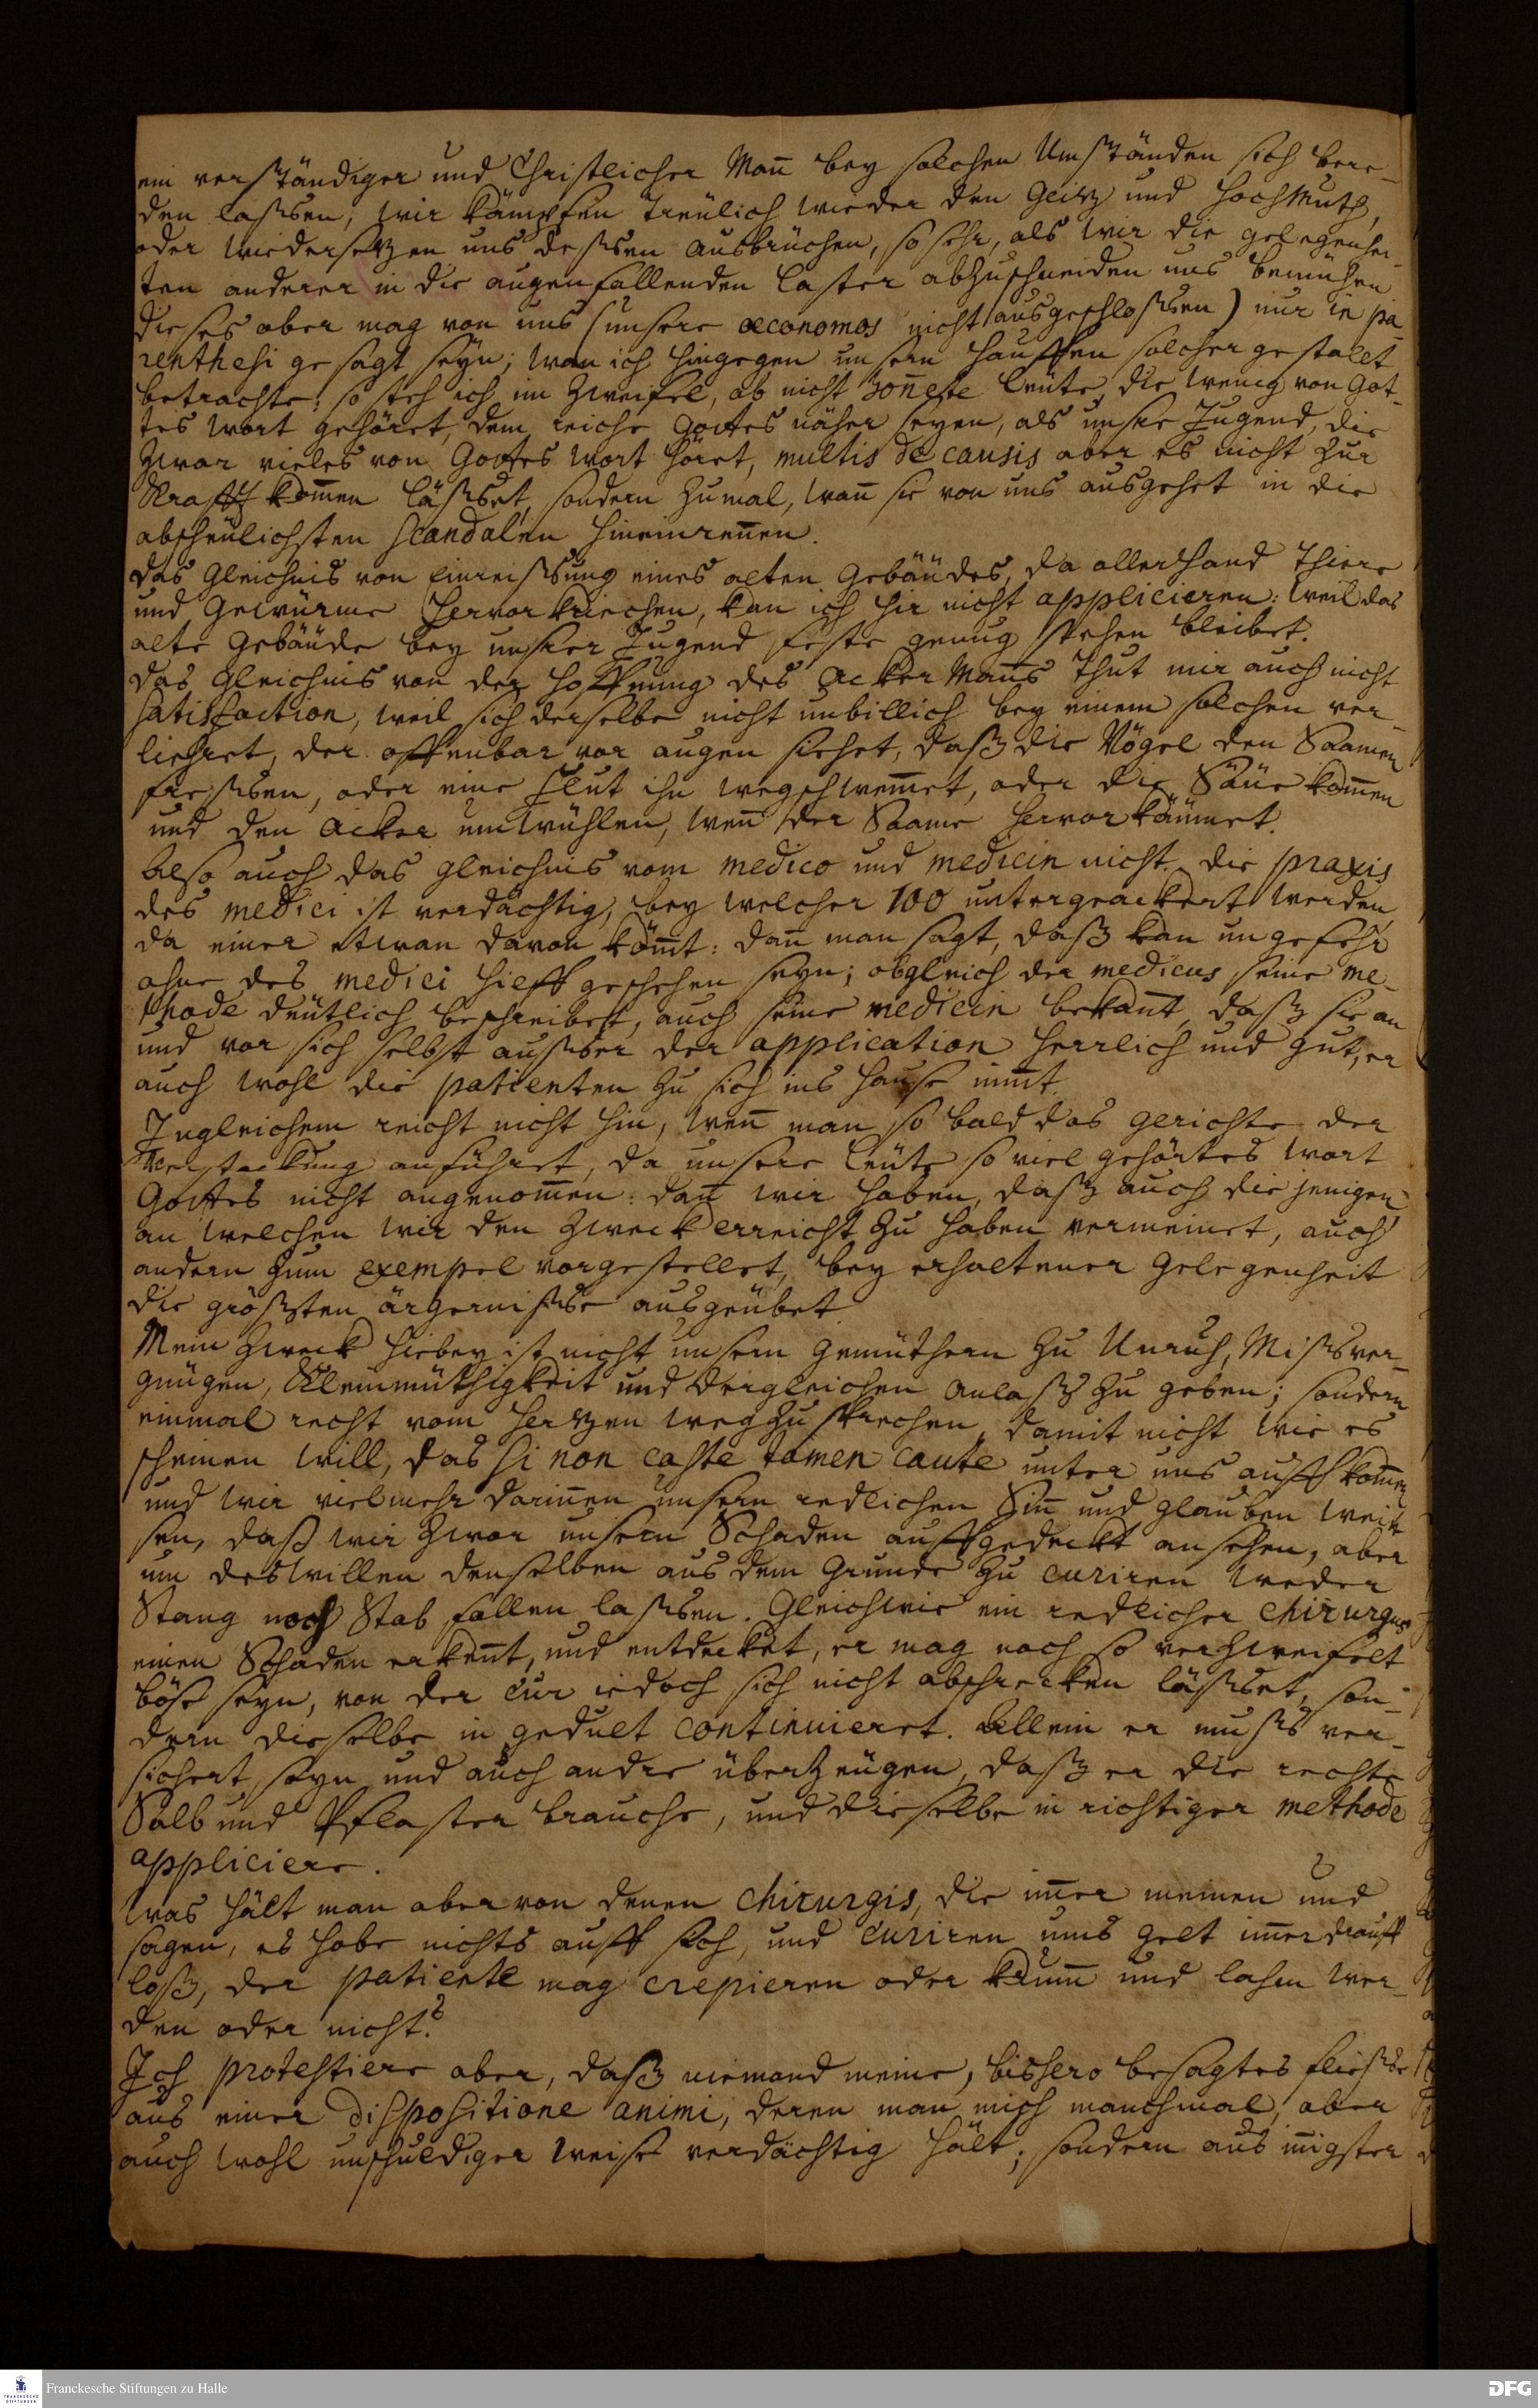 ein verständiger und Christlicher Mañ bey solchen Umständen sich bere-
den lassen, wir kämpfen treülich wieder den Geitz und HochMuth,
oder wiedersetzen uns dessen ausbrüchen, so sehr, als wir die gelegenhei-
ten anderer in die augenfallenden laster abzuschneiden uns bemühen
dieses aber mag von uns (unsere œconomos nicht ausgeschlossen) nur in pa-
renthesi gesagt seyn; wan ich hingegen unsern Hauffen solcher gestalt
betrachte: so steh ich im Zweifel, ob nicht hoñete leüte, die wenig von Got-
tes wort gehöret, dem reiche Gottes näher seyen, als unsre Jugend, die
zwar vieles von Gottes wort höret, multis de causis aber es nicht zur
Krafft kom̃en lässet, sondern zumal, wañ sie von uns ausgehet in die
abscheülichsten scandalen hineinreñen.
das Gleichnis von Einreissung eines alten Gebäudes, da allerhand Thiere
und Gewürme hervorkriechen, kan ich hir nicht applicieren: weil das
alte Gebäude bey unsrer Jugend feste genug stehen bleibet.
das Gleichnis von der Hoffnung des AckerMañs thut mir auch nicht
satisfaction, weil sich derselbe nicht unbillich bey einem solchen ver-
liehret, der offenbar vor augen siehet, daß die Vögel den Saamen
fressen, oder eine Flut ihn wegschwem̃et, oder die Säue kom̃en
und den Acker umwühlen, weñ der Saame hervorkäumet.
Also auch das gleichnis vom medico und medicin nicht. die praxis
des medici ist verdächtig, bey welcher 100 untergeackert werden,
da einer etwan davon köm̃t: dañ man sagt, daß kan ungefehr
ohne des medici Hielff geschehen seyn; obgleich der medicus seine me-
thode deütlich beschreibet, auch seine medicin bekañt, daß sie an
und vor sich selbst ausser der application herrlich und gut, er
auch wohl die patienten zu sich ins Hause nim̃t.
Ingleichem reicht nicht hin, weñ man so bald das gerichte der
Verstockung anführet, da unsere leüte so viel gehörtes wort
Gottes nicht angenom̃en: dañ wir haben, daß auch die jenigen
an welchen wir den Zweck erreicht zu haben vermeinet, auch
andern zum exempel vorgestellet, bey erhaltener Gelegenheit
die grössten ärgernisse ausgeübet.
Mein Zweck hiebey ist nicht unsern Gemüthern zu Unruh, Missver-
gnügen, Kleinmüthigkeit und dergleichen Anlaß zu geben; sondern
einmal recht vom Hertzen weg zu sprechen, damit nicht wie es
scheinen will, das si non caste tamen caute unter uns auffkom̃en
und wir vielmehr dariñen unsern redlichen Siñ und glauben wei-
sen, daß wir zwar unsern Schaden auffgedeckt ansehen, aber
um deswillen denselben aus dem Grunde zu curiren weder
Stang noch Stab fallen lassen. Gleichwie ein redlicher chirurgus
einen Schaden erkeñt, und entdecket, er mag noch so verzweifelt
böse seyn, von der Cur iedoch sich nicht abschrecken lässet, son-
dern dieselbe in gedult continuieret. Allein er muss ver-
sichert seyn und auch andre überzeügen, daß er die rechte
Salb und Pflaster brauche, und dieselbe in richtiger methode
appliciere.
was hält man aber von denen chirurgis, die im̃er meinen und
sagen, es habe nichts auff sich, und curiren ums gelt im̃er drauff
loß, der patiente mag crepieren oder krum̃ und lahm wer-
den oder nicht?
Ich protestiere aber, daß niemand meine, bishero besagtes fliesse
aus einer dispositione animi, deren man mich manchmal, aber
auch wohl unschuldiger weise verdächtig hält; sondern aus iñigster
Franckesche Stiftungen zu Halle
DFG